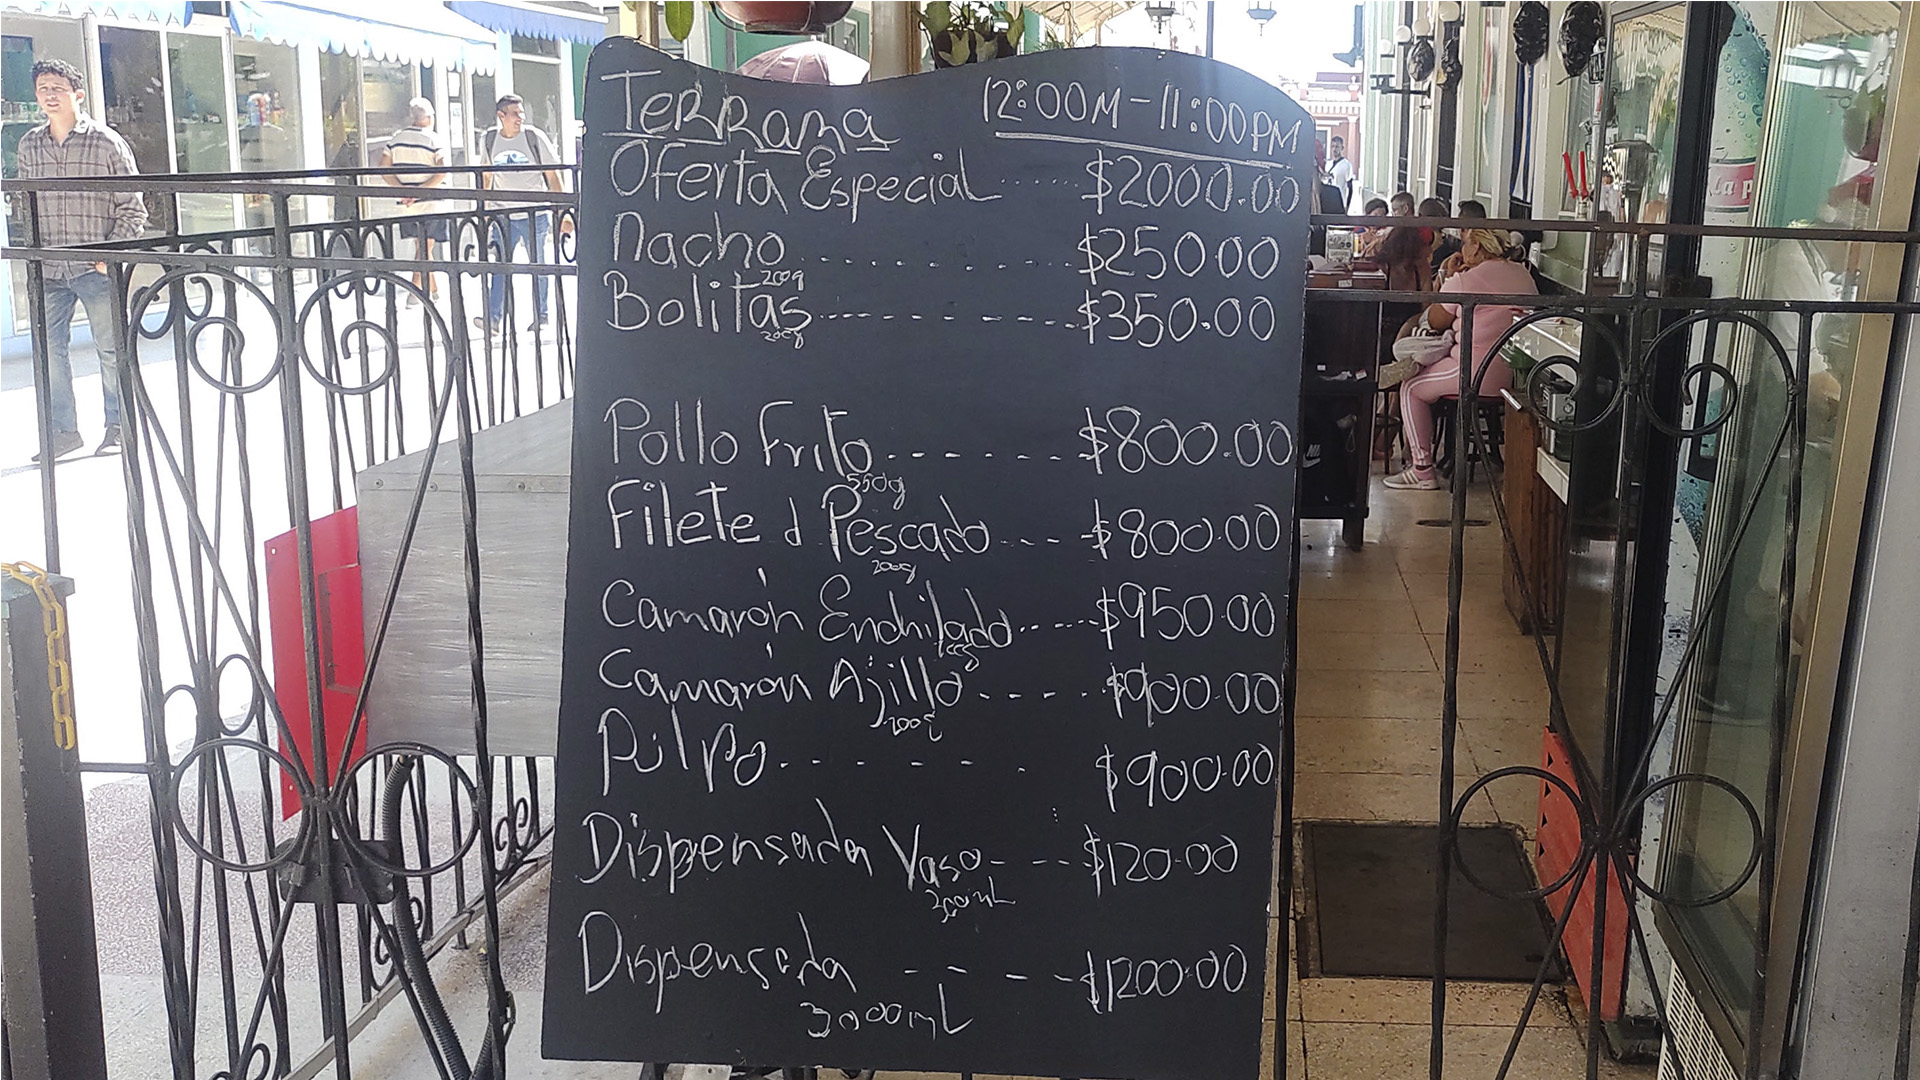 Terraza 12:00M - 11:00PM
Oferta Especial ...... $2000.00
Nacho ........ $250.00
200g
Bolitas ........ $350.00
200g
Pollo Frito ------ $800.00
350g
Filete d Pescado ---- $800.00
200g
Camarón Enchilado ----- $950.00
Camarón Ajillo ---- $900.00
200g
Pulpo ...... $900.00
Dispensada Vaso --- $120.00
300mL
Dispensada ---- $1200.00
3000mL
La p